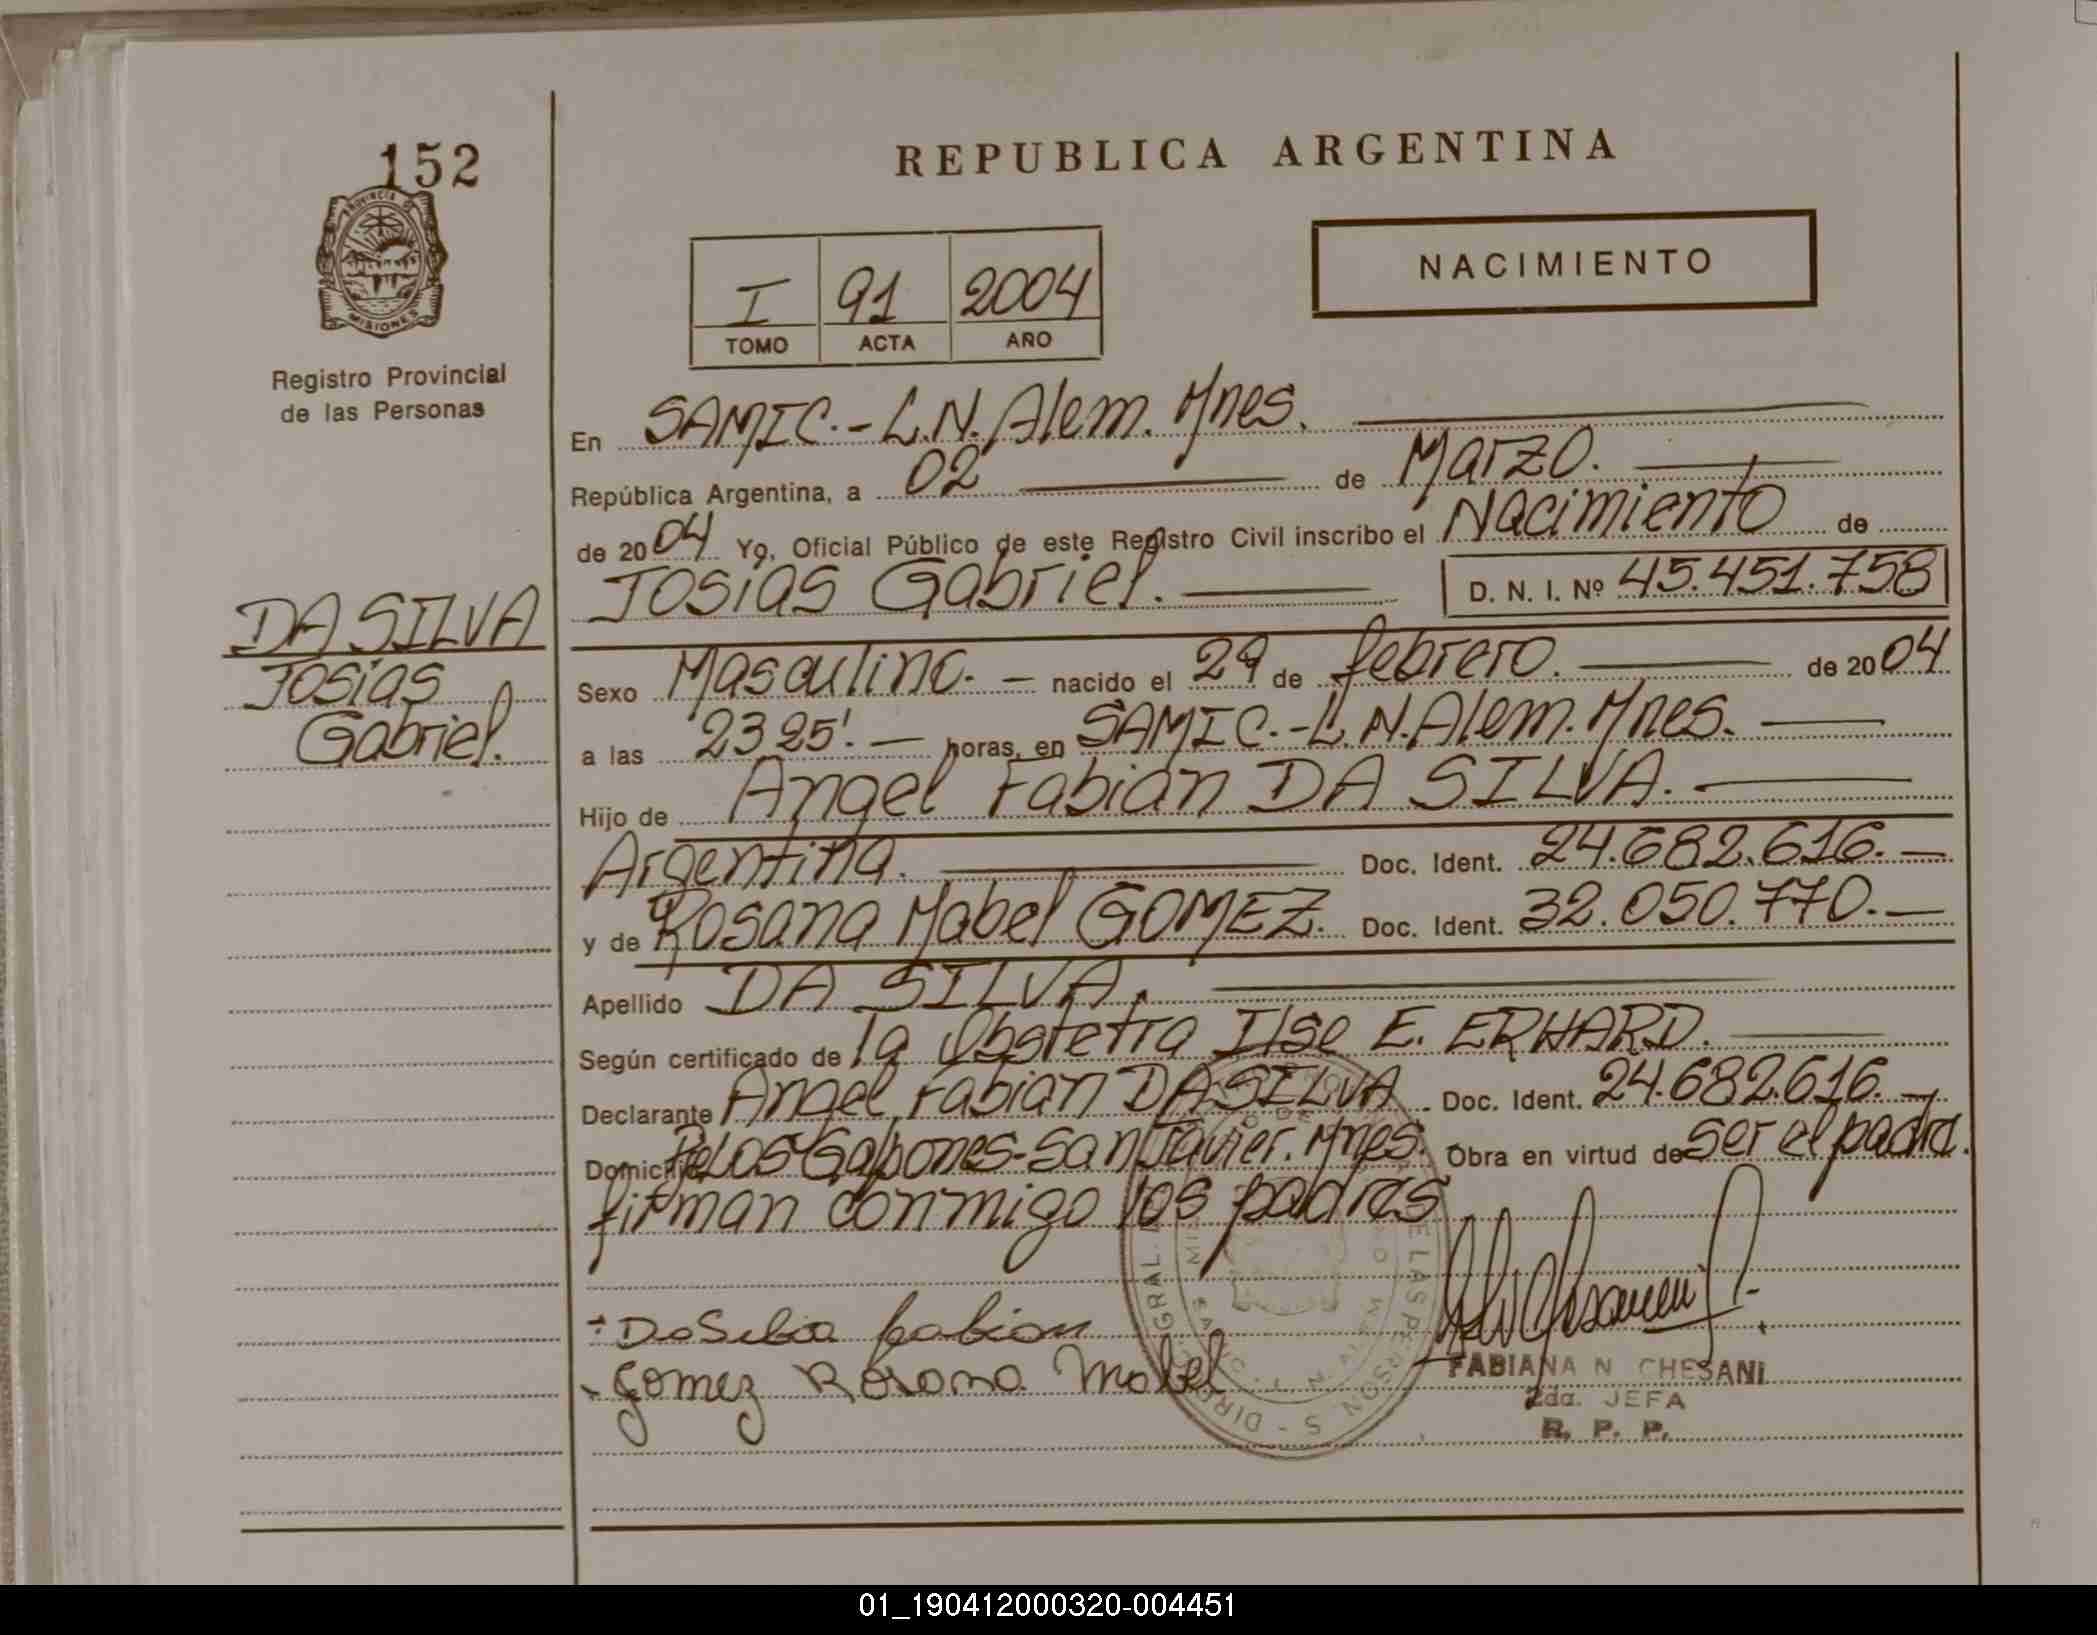 152
PROVINCIA DE
MISIONES
Registro Provincial
de las Personas
DA SILVA
Josías
Gabriel.
REPUBLICA ARGENTINA
NACIMIENTO
I 91 2004
TOMO ACTA AÑO
En SAMIC.-L.N.Alem.Mnes.
República Argentina, a 02 de Marzo.
de 2004 Yo, Oficial Público de este Registro Civil inscribo el Nacimiento de
Josías Gabriel. D. N. I. Nº 45.451.758
Sexo Masculino. nacido el 29 de febrero. de 2004
a las 23 25'. horas, en SAMIC.-L.N.Alem.Mnes.
Hijo de Angel Fabián DA SILVA.
Argentina. Doc. Ident. 24.682.616.
y de Rosana Mabel GOMEZ. Doc. Ident. 32.050.770.
Apellido DA SILVA.
Según certificado de la Obstetra Ilse E. ERHARD.
Declarante Angel Fabián DA SILVA Doc. Ident. 24.682.616.
Domicilio Pe Los Galpones-San Javier.Mnes. Obra en virtud de ser el padre.
firman conmigo los padres
Da Silva fabian
Gomez Rosana Mabel
FABIANA N CHESANI
2da. JEFA
R. P. P.
01_190412000320-004451